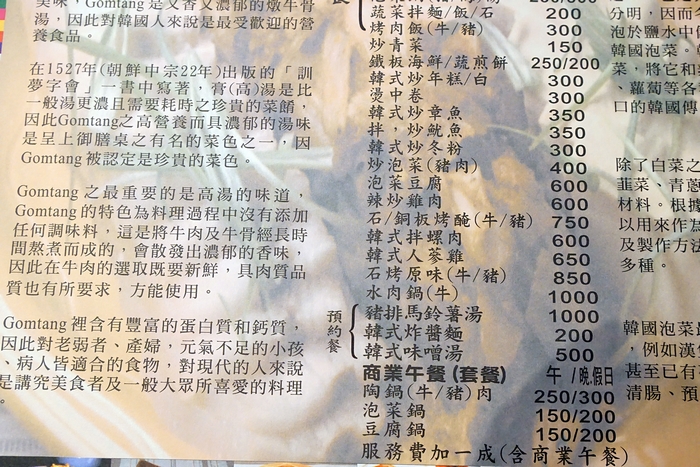 美味，Gomtang 是又香又濃郁的燉牛骨
湯，因此對韓國人來說是最受歡迎的營
養食品。
在1527年(朝鮮中宗22年)出版的「訓
夢字會」一書中寫著，膏(高)湯是比
一般湯更濃且需要耗時之珍貴的菜餚，
因此Gomtang之高營養而具濃郁的湯味
是呈上御膳桌之有名的菜色之一，因
Gomtang 被認定是珍貴的菜色。
Gomtang 之最重要的是高湯的味道，
Gomtang 的特色為料理過程中沒有添加
任何調味料，這是將牛肉及牛骨經長時
間熬煮而成的，會散發出濃郁的香味，
因此在牛肉的選取既要新鮮，具肉質品
質也有所要求，方能使用。
Gomtang 裡含有豐富的蛋白質和鈣質，
因此對老弱者、產婦，元氣不足的小孩
、病人皆適合的食物，對現代的人來說
是講究美食者及一般大眾所喜愛的料理
。
蔬菜拌麵/飯/石 200
烤肉飯(牛/豬) 300
炒青菜 150
鐵板海鮮/蔬煎餅 250/200
韓式炒年糕/白 300
燙中卷 300
韓式炒章魚 350
拌，炒魷魚 350
韓式炒冬粉 300
炒泡菜(豬肉) 400
泡菜豆腐 600
辣炒雞肉 600
石/銅板烤醃(牛/豬) 750
韓式拌螺肉 600
韓式人蔘雞 650
石烤原味(牛/豬) 850
水肉鍋(牛) 1000
預約餐
豬排馬鈴薯湯 1000
韓式炸醬麵 200
韓式味噌湯 500
商業午餐(套餐) 午 /晚.假日
陶鍋(牛/豬)肉 250/300
泡菜鍋 150/200
豆腐鍋 150/200
服務費加一成(含商業午餐)
分明，因而
泡於鹽水中
韓國泡菜。
菜，將它和
、蘿蔔等各
口的韓國傳
除了白菜之
韭菜、青蔥
材料。根據
以用來作為
及製作方法
多種。
韓國泡菜
，例如漢
甚至已有
清腸、預